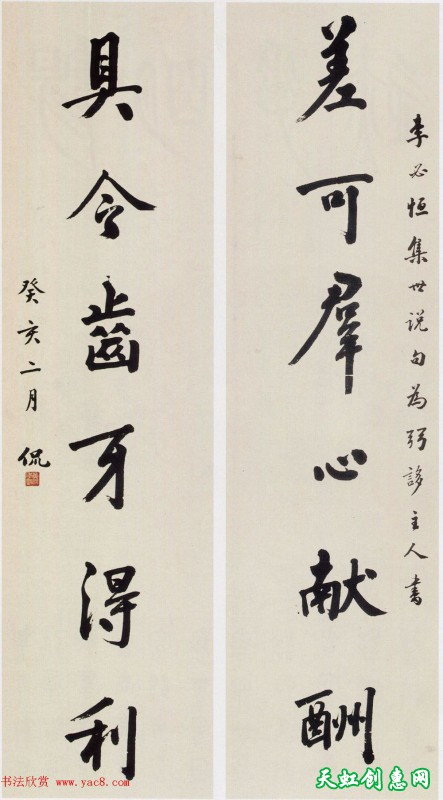 李必恒集世说句為弜誃主人書
差可羣心献酬
具令齒牙得利
癸亥二月 侃
书法欣赏 www.yac8.com
天虹创惠网